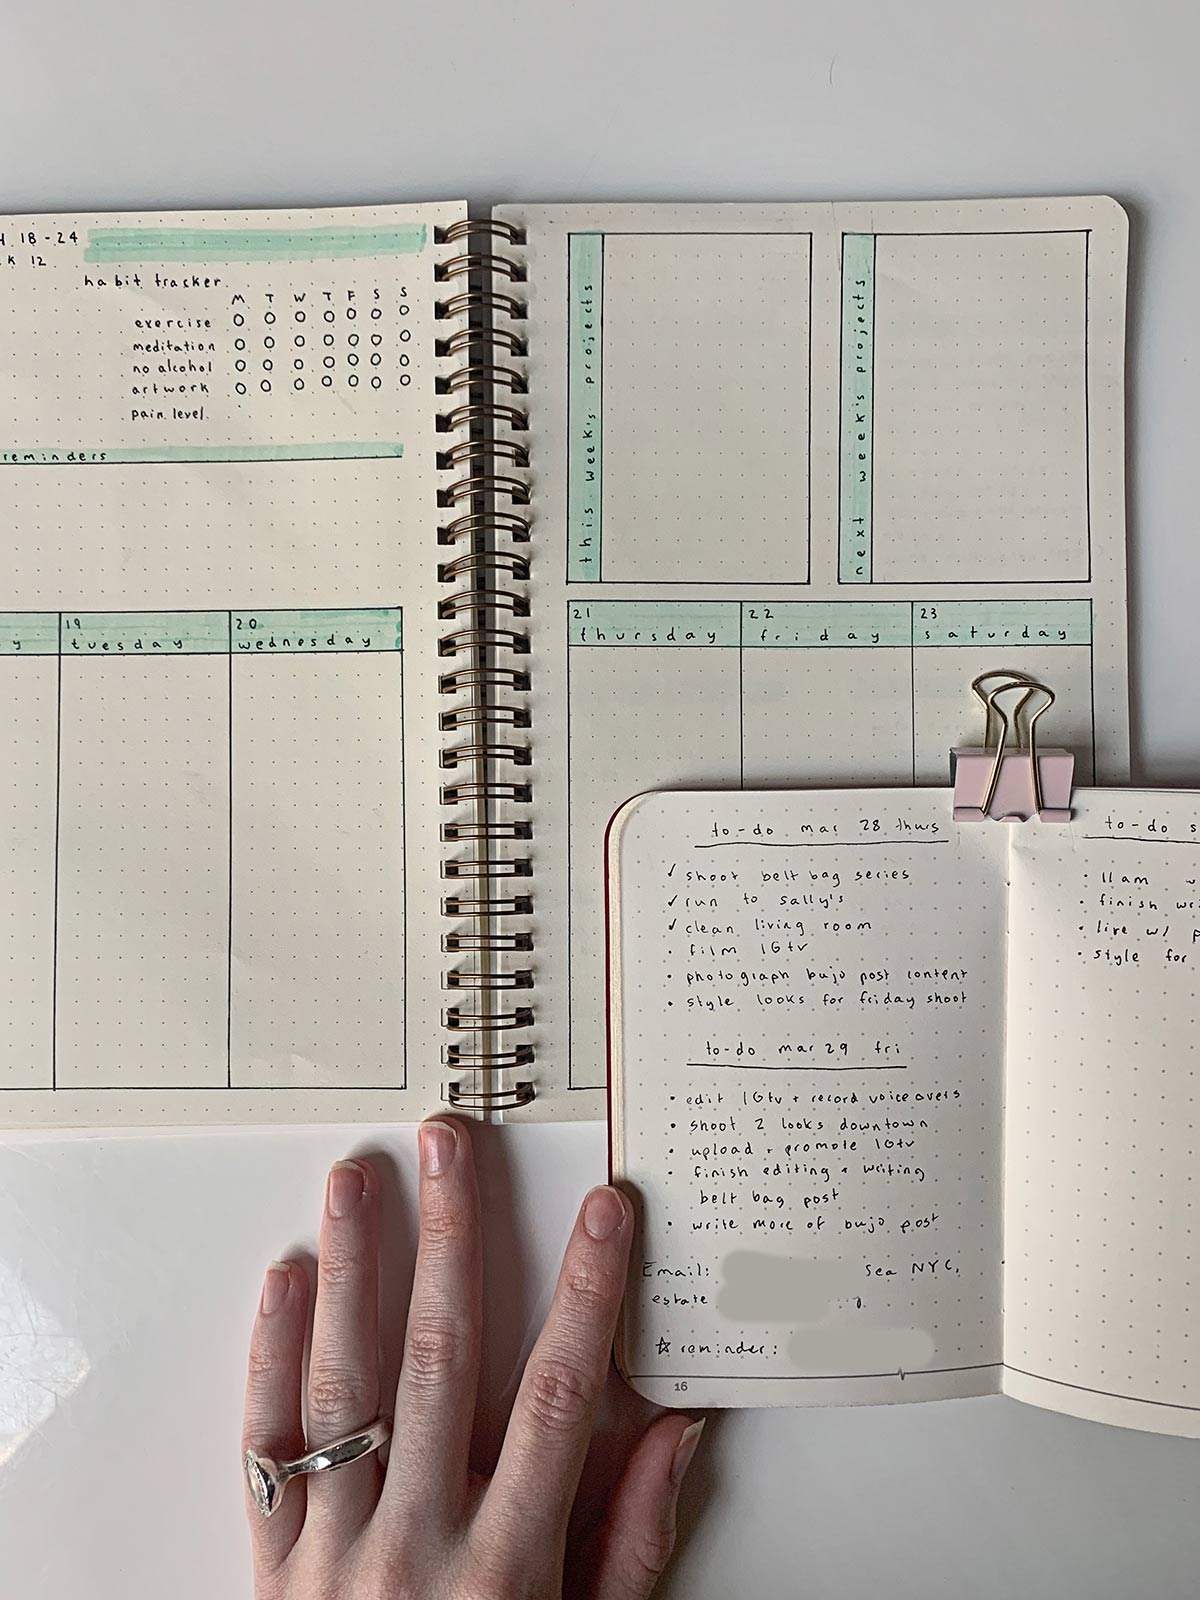 18-24
K 12
habit tracker
M T W T F S S
exercise
meditation
no alcohol
artwork
pain level
reminders
19
tuesday
20
wednesday
this week's projects
next week's projects
21
thursday
22
friday
23
saturday
to-do mar 28 thurs
✓ shoot belt bag series
✓ run to sally's
✓ clean living room
· film IGtv
• photograph bujo post content
• style looks for friday shoot
to-do mar 29 fri
• edit IGtv + record voice overs
• shoot 2 looks downtown
• upload + promote IGtv
• finish editing + writing
belt bag post
• write more of bujo post
Email: Sea NYC,
estate
☆ reminder:
16
to-do s
• 11am w
• finish wri
• live w/ p
• style for